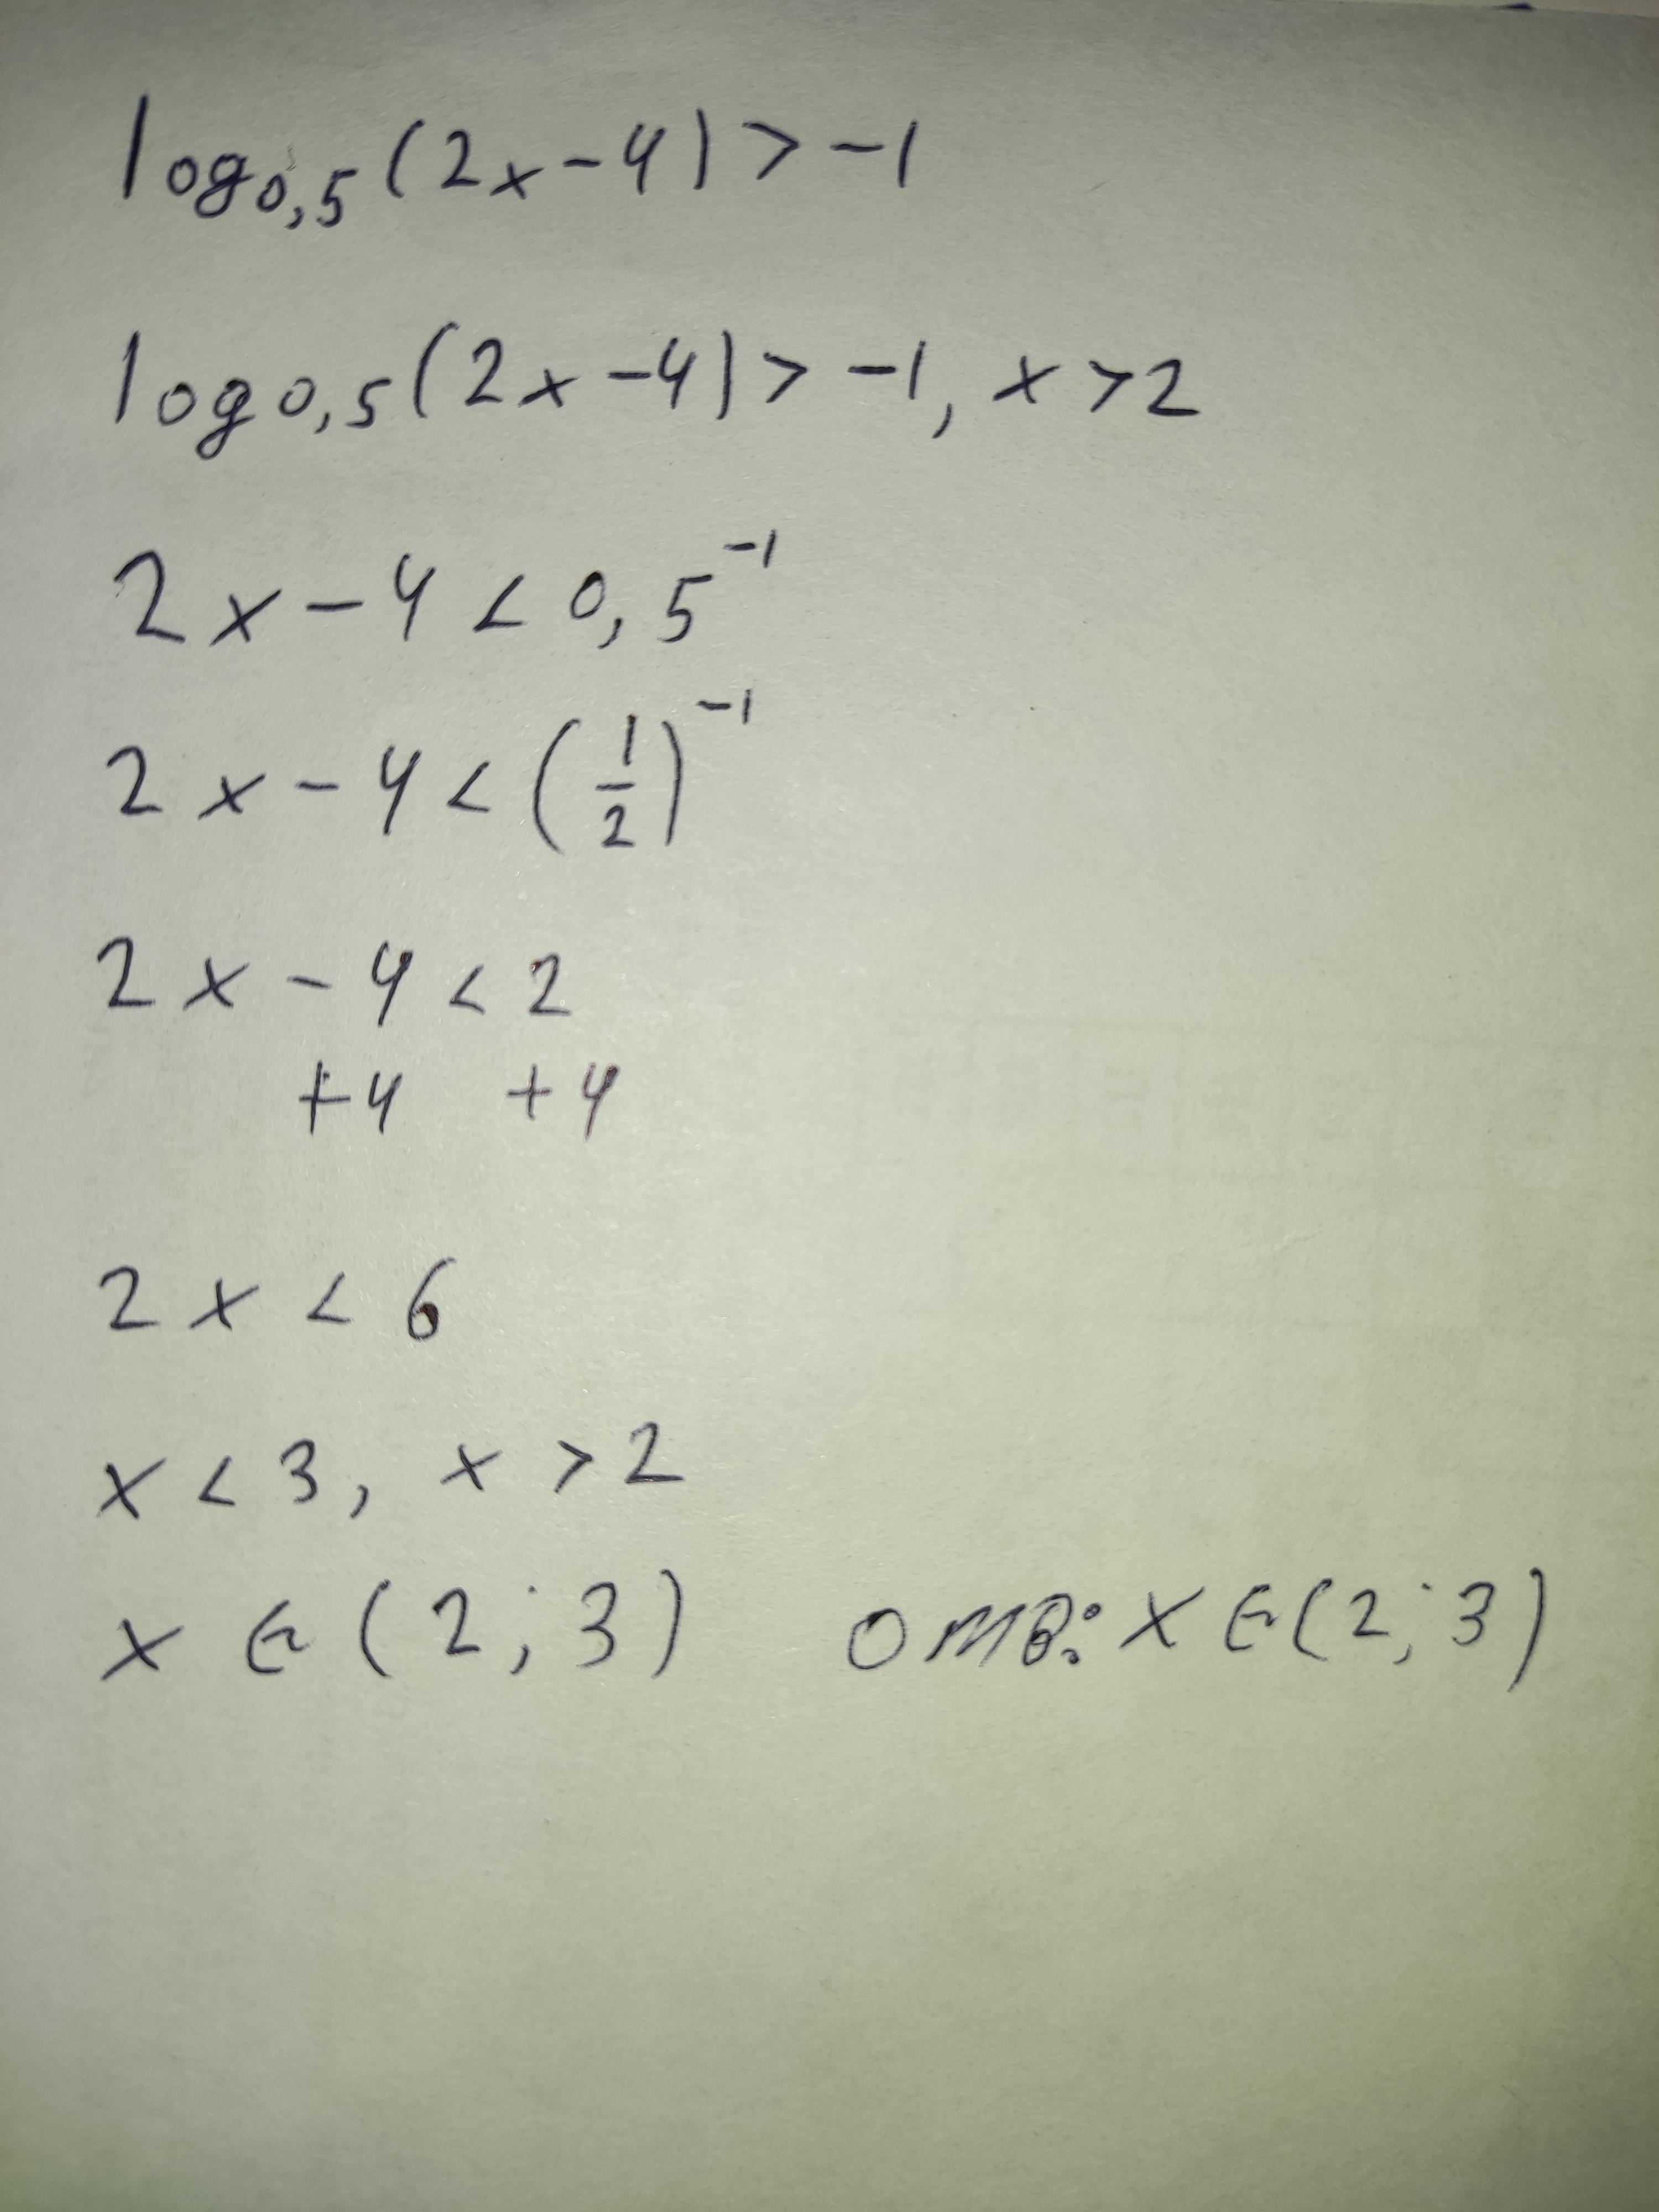 log₀,₅(2x-4)>-1
log₀,₅(2x-4)>-1, x>2
2x-4<0,5⁻¹
2x-4<(1/2)⁻¹
2x-4<2
+4 +4
2x<6
x<3, x>2
x∈(2;3) Отв: x∈(2;3)